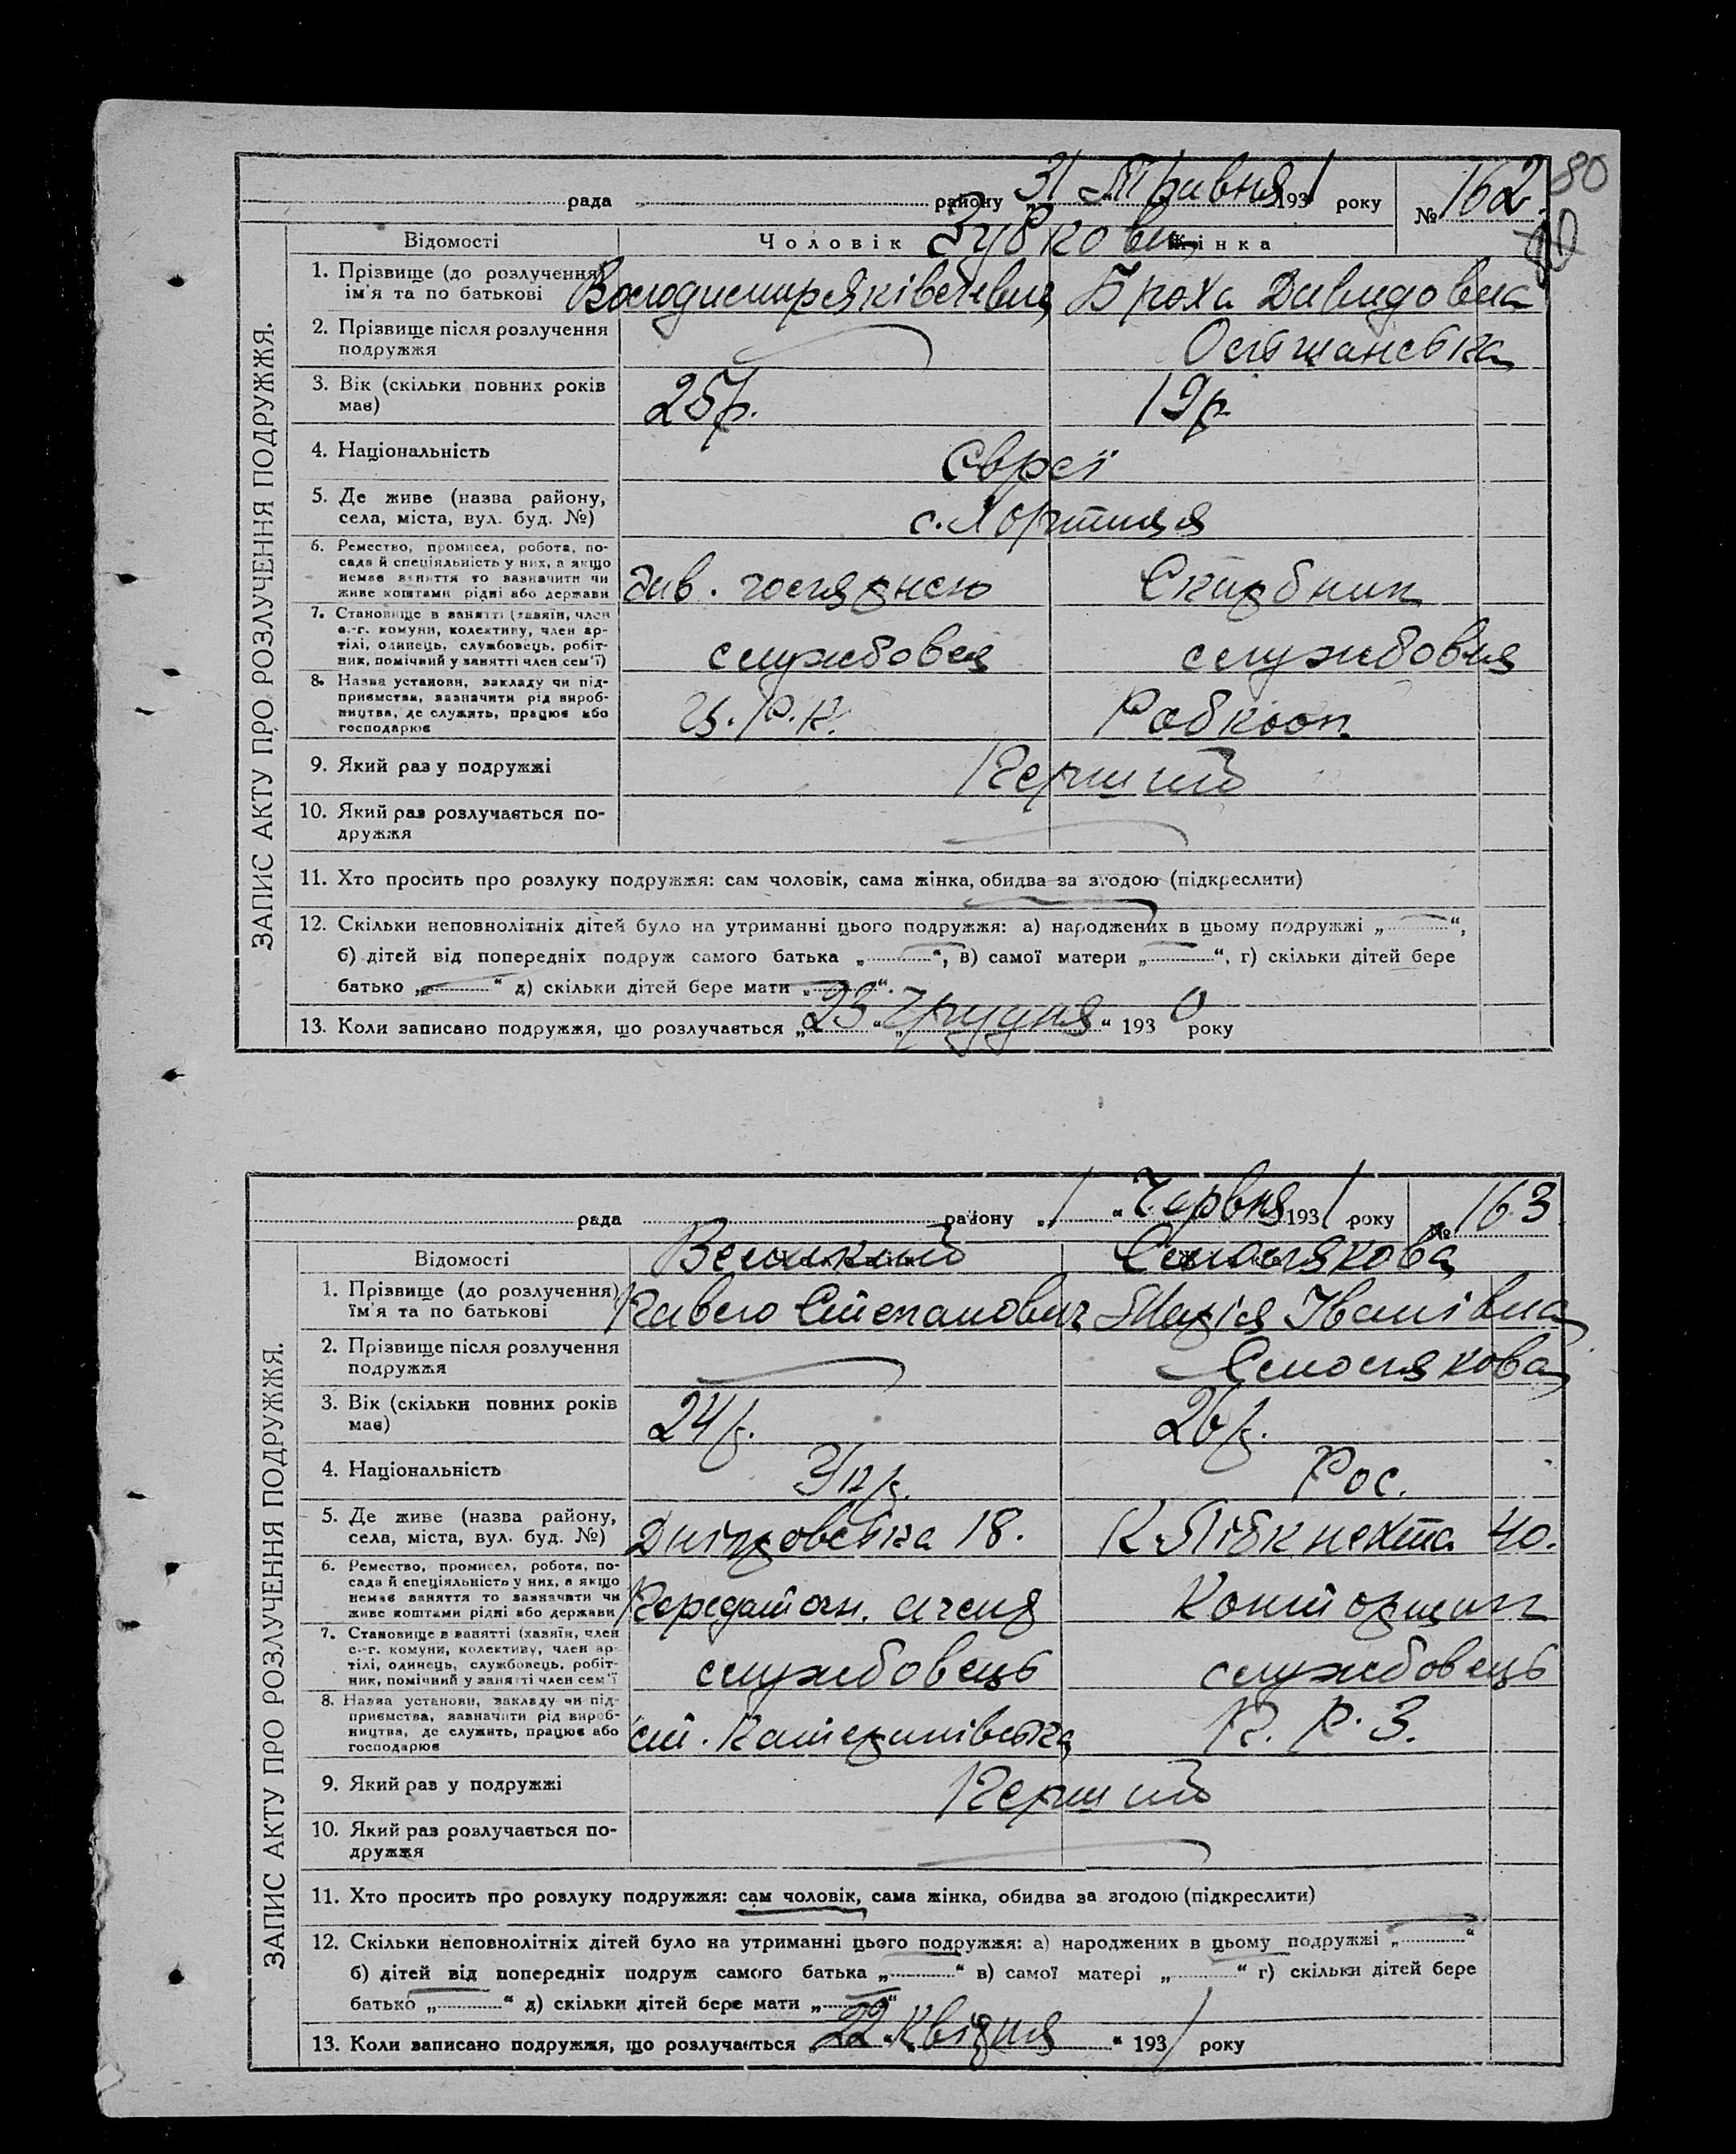 80
рада района „31“ Травня 1931 року № 162.
Відомості Чоловік Жінка
Зубкови
ЗАПИС АКТУ ПРО РОЗЛУЧЕННЯ ПОДРУЖЖЯ.
1. Прізвище (до розлучення)
ім'я та по батькові
Володимир Яківлевич Броха Давидовна
2. Прізвище після розлучення
подружжя
3. Вік (скільки повних років
має)
25р. 19р.
4. Національність Євреї
5. Де живе (назва району,
села, міста, вул. буд. №)
с. Хортиця
6. Ремество, промисел, робота, по-
сада й спеціяльність у них, а якщо
немає заняття то зазначити чи
живе коштами рідні або держави
7. Становище в занятті (хазяїн, член
с.-г. комуни, колективу, член ар-
тілі, одинець, службовець, робіт-
ник, помічний у занятті член сем'ї)
службовец службовця
8. Назва установи, закладу чи під-
приємства, зазначити рід вироб-
ництва, де служить, працює або
господарює
Ц.Р.К. Робкооп
9. Який раз у подружжі Перший
10. Який раз розлучається по-
дружжя
11. Хто просить про розлуку подружжя: сам чоловік, сама жінка, обидва за згодою (підкреслити)
12. Скільки неповнолітніх дітей було на утриманні цього подружжя: а) народжених в цьому подружжі „ “,
б) дітей від попередніх подруж самого батька „ “, в) самої матери „ “, г) скільки дітей бере
батько „ “ д) скільки дітей бере мати „ “.
13. Коли записано подружжя, що розлучається „23“ „Грудня“ 1930 року
рада району „1“ „Червня 1931 року № 163
Відомості Великий
ЗАПИС АКТУ ПРО РОЗЛУЧЕННЯ ПОДРУЖЖЯ.
1. Прізвище (до розлучення)
ім'я та по батькові
Павло Степанович Марія Іванівна
2. Прізвище після розлучення
подружжя
3. Вік (скільки повних років
має)
24р. 26р.
4. Національність Укр. Рос.
5. Де живе (назва району,
села, міста, вул. буд. №)
Дніпровська 18. К. Лібкнехта 40.
6. Ремество, промисел, робота, по-
сада й спеціяльність у них, а якщо
немає заняття то зазначити чи
живе коштами рідні або держави
Конторщик
7. Становище в занятті (хазяїн, член
с.-г. комуни, колективу, член ар-
тілі, одинець, службовець, робіт-
ник, помічний у занятті член сем'ї
службовець службовець
8. Назва установи, закладу чи під-
приємства, зазначити рід вироб-
ництва, де служить, працює або
господарює
ст. Катеринівська К. Р. З.
9. Який раз у подружжі Перший
10. Який раз розлучається по-
дружжя
11. Хто просить про розлуку подружжя: сам чоловік, сама жінка, обидва за згодою (підкреслити)
12. Скільки неповнолітніх дітей було на утриманні цього подружжя: а) народжених в цьому подружжі „ “
б) дітей від попередніх подруж самого батька „ “ в) самої матері „ “ г) скільки дітей бере
батько „ “ д) скільки дітей бере мати „ “
13. Коли записано подружжя, що розлучається „22„ Квітня “ 1931 року